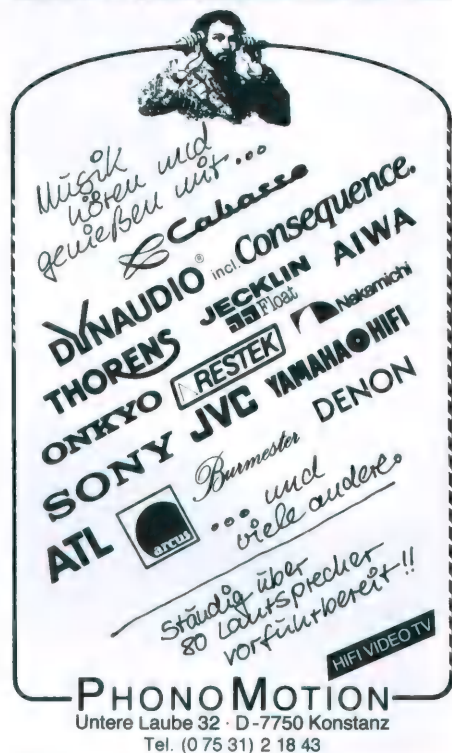 Musik
hören und
genießen mit...
Cabasse
DYNAUDIO® incl. Consequence.
THORENS JECKLIN Float AIWA
ONKYO RESTEK Nakamichi
SONY JVC YAMAHA HIFI
ATL arcus Burmester DENON
... und
viele andere.
Ständig über
80 Lautsprecher
vorführbereit!!
HIFI VIDEO TV
PHONOMOTION
Untere Laube 32 · D-7750 Konstanz
Tel. (0 75 31) 2 18 43